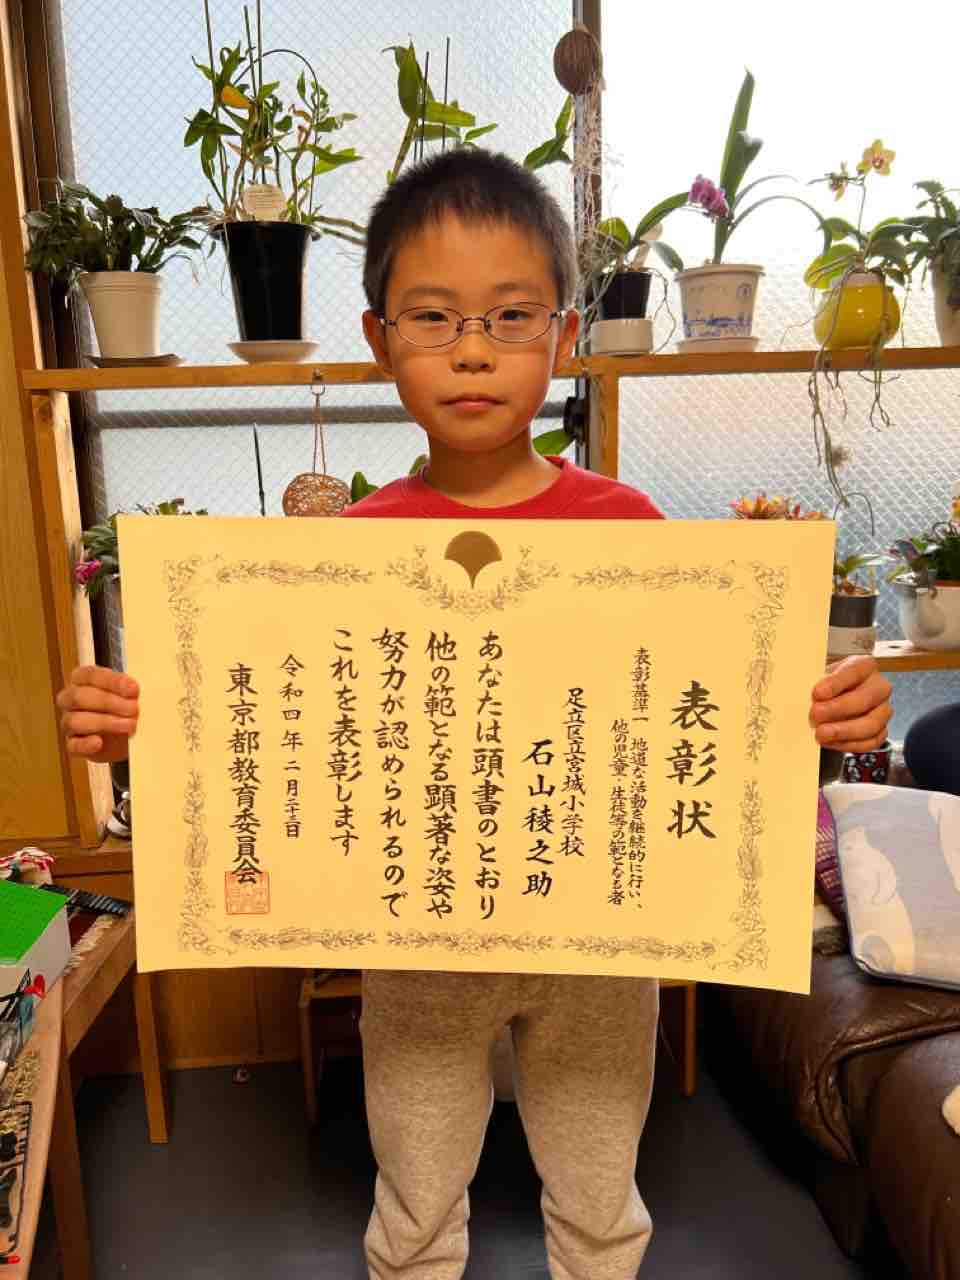 表彰状
表彰基準一 地道な活動を継続的に行い、
他の児童・生徒等の範となる者
足立区立宮城小学校
石山稜之助
あなたは頭書のとおり
他の範となる顕著な姿や
努力が認められるので
これを表彰します
令和四年二月二十三日
東京都教育委員会